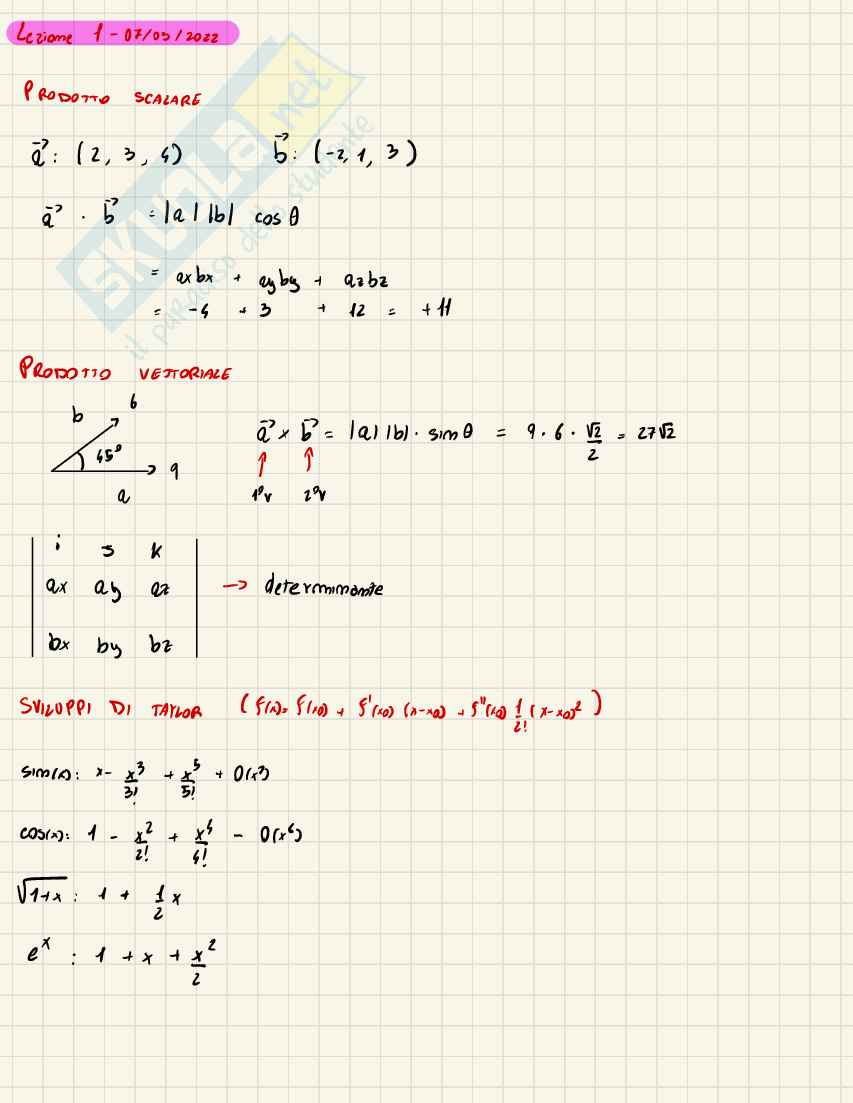 Lezione 1 - 07/03/2022
PRODOTTO SCALARE
a⃗: (2, 3, 4) b⃗: (-2, 1, 3)
a⃗ · b⃗ = |a| |b| cos θ
= axbx + ayby + azbz
= -4 + 3 + 12 = +11
PRODOTTO VETTORIALE
b 6
45°
9
a
a⃗ × b⃗ = |a| |b| · sin θ = 9 · 6 · √2/2 = 27√2
1°v 2°v
i j k
ax ay az → determinante
bx by bz
SVILUPPI DI TAYLOR (f(x) = f(x0) + f'(x0) (x-x0) + f''(x0) 1/2! (x-x0)²)
sin(x): x - x³/3! + x⁵/5! + O(x⁷)
cos(x): 1 - x²/2! + x⁴/4! - O(x⁶)
√1+x : 1 + 1/2 x
eˣ : 1 + x + x²/2
SKUOLA.net
il paradiso dello studente